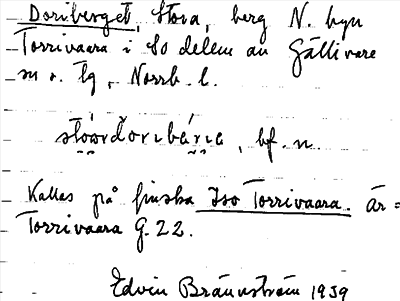 Doriberget, Stora, berg N. byn
Torrivaara i So delen av Gällivare
sn o. tg, Norrb. l.
stóərdoribárjε, bf. n.
Kallas på finska Iso Torrivaara. Är =
Torrivaara G. 22.
Edvin Brännström 1939